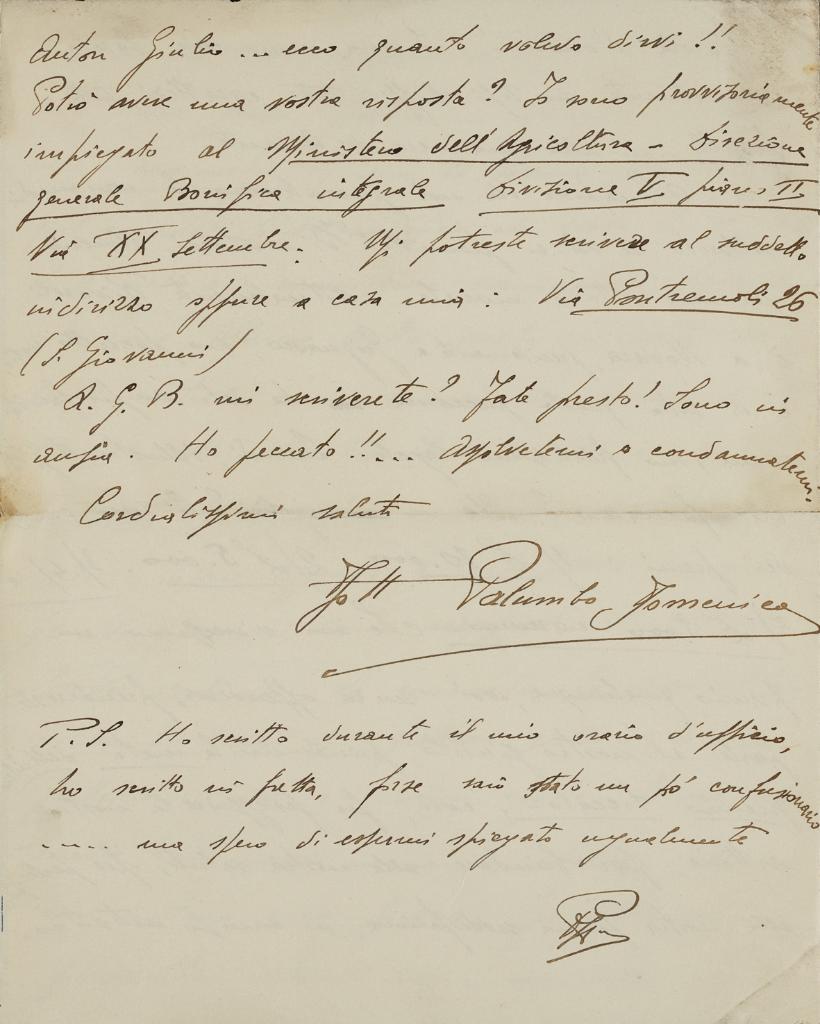 Anton Giulio ... ecco quanto volevo dirvi !!
Potrò avere una vostra risposta? Io sono provvisoriamente
impiegato al Ministero dell'Agricoltura - Direzione
generale Bonifica integrale Divisione V piano II
Via XX Settembre. Mi potreste scrivere al suddetto
indirizzo oppure a casa mia : Via Pontremoli 26
(S. Giovanni)
A. G. B. mi scriverete? Fate presto! Sono in
ansia. Ho peccato !!... Assolvetemi o condannatemi.
Cordialissimi saluti
Dott Palumbo Domenico
P.S. Ho scritto durante il mio orario d'ufficio,
ho scritto in fretta, forse sarò stato un pó confusionario
..... ma spero di essermi spiegato ugualmente